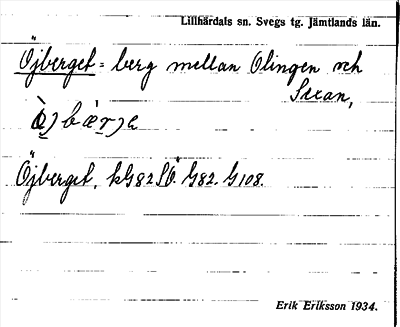 Lillhärdals sn. Svegs tg. Jämtlands län.
Öjberget = berg mellan Olingen och
Öjberget. kG82SÖ. G82. G108.
Erik Eriksson 1934.